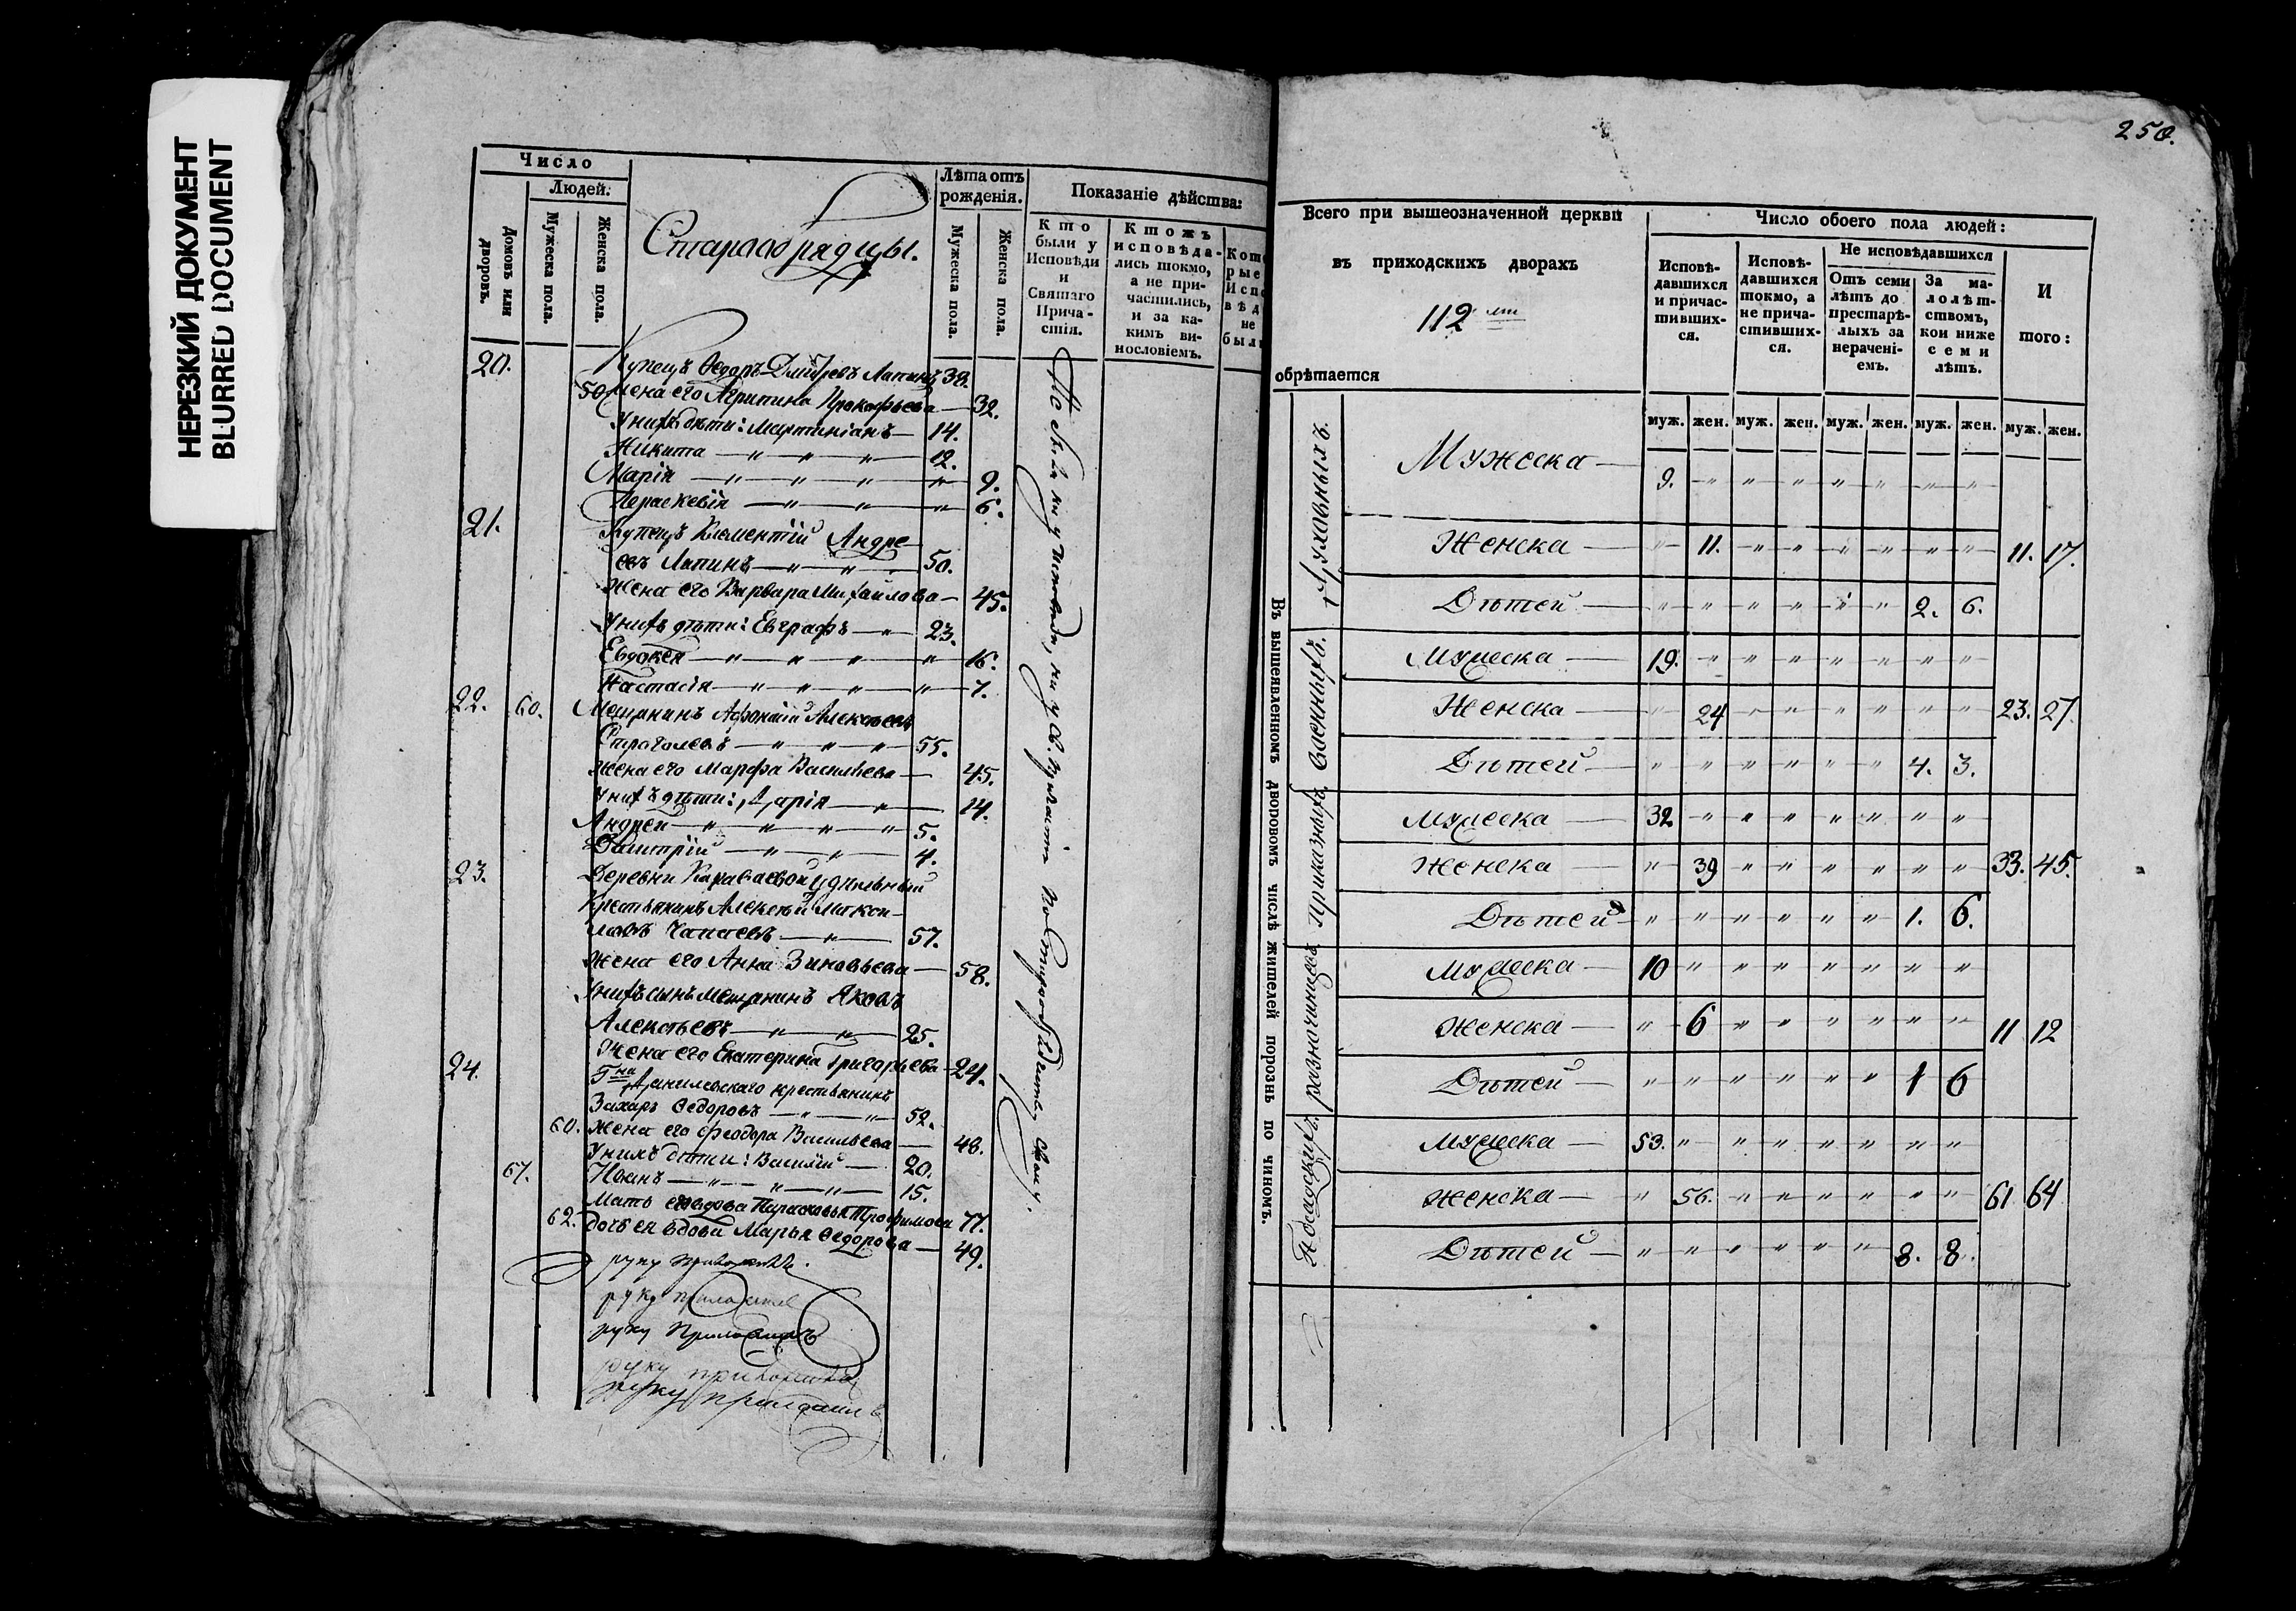 НЕРЕЗКИЙ ДОКУМЕНТ
BLURRED DOCUMENT
Число
Людей.
Домовъ или дворовъ.
Мужеска пола.
Женска пола.
Старообрядцы.
Лѣта отъ рожденія.
Мужеска пола.
Женска пола.
Показаніе дѣйства:
Кто были у Исповѣди и Святаго Причастія.
Ктожъ исповѣдались токмо, а не причастились, и за какимъ винословіемъ.
20. Купецъ Ѳедоръ Дмитревъ Лапинъ 38.
50 Жена его Агрипина Прокофьева — 32.
У нихъ дѣти: Мартиніанъ — 14.
Никита — „ — „ — „ — 12.
Марія — „ — „ — „ — „ — 9.
Параскевія — „ — „ — „ — 6.
21. Купецъ Клементій Андре-
евъ Лапинъ — „ — „ — 50.
Жена его Варвара Михайлова — 45.
У нихъ дѣти: Евграфъ — „ — 23.
Евдокея — „ — „ — „ — „ — 16.
Настасія — „ — „ — „ — „ — 7.
22. 60. Мещанинъ Афонасій Алексѣевъ
— „ — „ — „ — 55.
Жена его Марфа Васильева — 45.
У нихъ дѣти: Дарія — „ — 14.
Андрей — „ — „ — „ — „ 5.
Димитрій — „ — „ — 4.
23. Деревни Караваевой удѣльный
Крестьянинъ Алексѣй
— „ — 57.
Жена его Анна Зиновьева — 58.
У нихъ сынъ мещанинъ Яковъ
Алексѣевъ — „ — „ — 25.
Жена его Екатерина Григорьева — 24.
24. Г-на Данилевскаго крестьянинъ
Захаръ Ѳедоровъ — „ — „ 52.
60. Жена его Феодора Васильева — 48.
У нихъ дѣти: Василій — 20.
67. Иванъ — „ — „ — „ — 15.
Мать его вдова Парасковья Трофимова 77.
62. дочь ея вдова Марья Ѳедорова — 49.
руку приложилъ.
руку приложилъ
руку приложилъ
руку приложилъ
руку приложилъ
250.
Всего при вышеозначенной церкви
въ приходскихъ дворахъ
112
обрѣтается
Число обоего пола людей:
Исповѣдавшихся и причастившихся.
Исповѣдавшихся токмо, а не причастившихся.
Не исповѣдавшихся
Отъ семи лѣтъ до престарѣлыхъ за нераченіемъ.
За малолѣтствомъ, кои ниже семи лѣтъ.
И того:
муж. жен. муж. жен. муж. жен. муж. жен. муж. жен.
Въ вышеявленномъ дворовомъ числѣ жителей порознь по чиномъ.
Духовныхъ.
Мужеска — 9. „ „ „ „ „ „ „
Женска — „ 11. „ „ „ „ „ „ 11. 17.
Дѣтей — „ „ „ „ „ „ 2. 6.
Военныхъ.
Мужеска — 19. „ „ „ „ „ „ „
Женска — „ 24 „ „ „ „ „ „ 23. 27.
Дѣтей — „ „ „ „ „ „ 4. 3.
Приказныхъ
Мужеска — 32 „ „ „ „ „ „ „
Женска — „ 39 „ „ „ „ „ „ 33. 45.
Дѣтей — „ „ „ „ „ „ 1. 6.
разночинцевъ
Мужеска — 10 „ „ „ „ „ „ „
Женска — „ 6 „ „ „ „ „ „ 11 12
Дѣтей — „ „ „ „ „ „ 1 6
Посадскихъ
Мужеска — 53. „ „ „ „ „ „ „
Женска — „ 56. „ „ „ „ „ „ 61 64
Дѣтей — „ „ „ „ „ „ 8. 8.